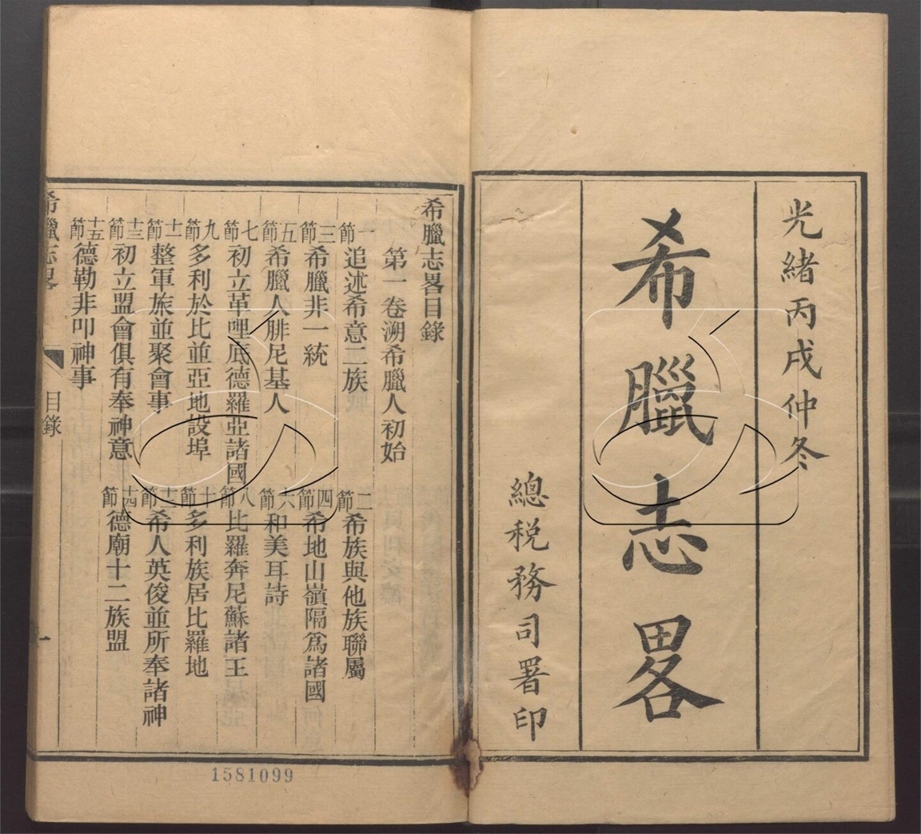 光緒丙戌仲冬
希臘志畧
總稅務司署印
希臘志畧目錄
第一卷溯希臘人初始
一節追述希意二族 二節希族與他族聯屬
三節希臘非一統 四節希地山嶺隔爲諸國
五節希臘人腓尼基人 六節和美耳詩
七節初立革哩底德羅亞諸國 八節比羅奔尼蘇諸王
九節多利於比並亞地設埠 十節多利族居比羅地
十一節整軍旅並聚會事 十二節希人英俊並所奉諸神
十三節初立盟會俱有奉神意 十四節德廟十二族盟
十五節德勒非叩神事
希臘志畧
目錄
一
1581099